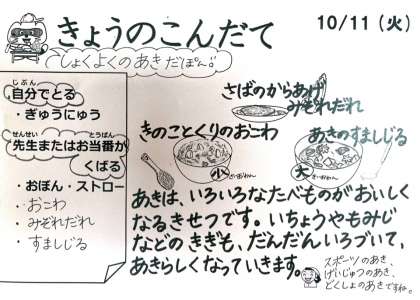 きょうのこんだて
10/11（火）
しょくよくのあきだぽん♪
じぶん
自分でとる
・ぎゅうにゅう
せんせい とうばん
先生またはお当番が
くばる
・おぼん・ストロー
・おこわ
・みぞれだれ
・すましじる
さばのからあげ
みぞれだれ
きのことくりのおこわ
小
あきのすましじる
大
あきは、いろいろなたべものがおいしく
なるきせつです。いちょうやもみじ
などの きぎも、だんだんいろづいて、
あきらしくなっていきます。
スポーツのあき、
げいじゅつのあき、
どくしょのあきですね。